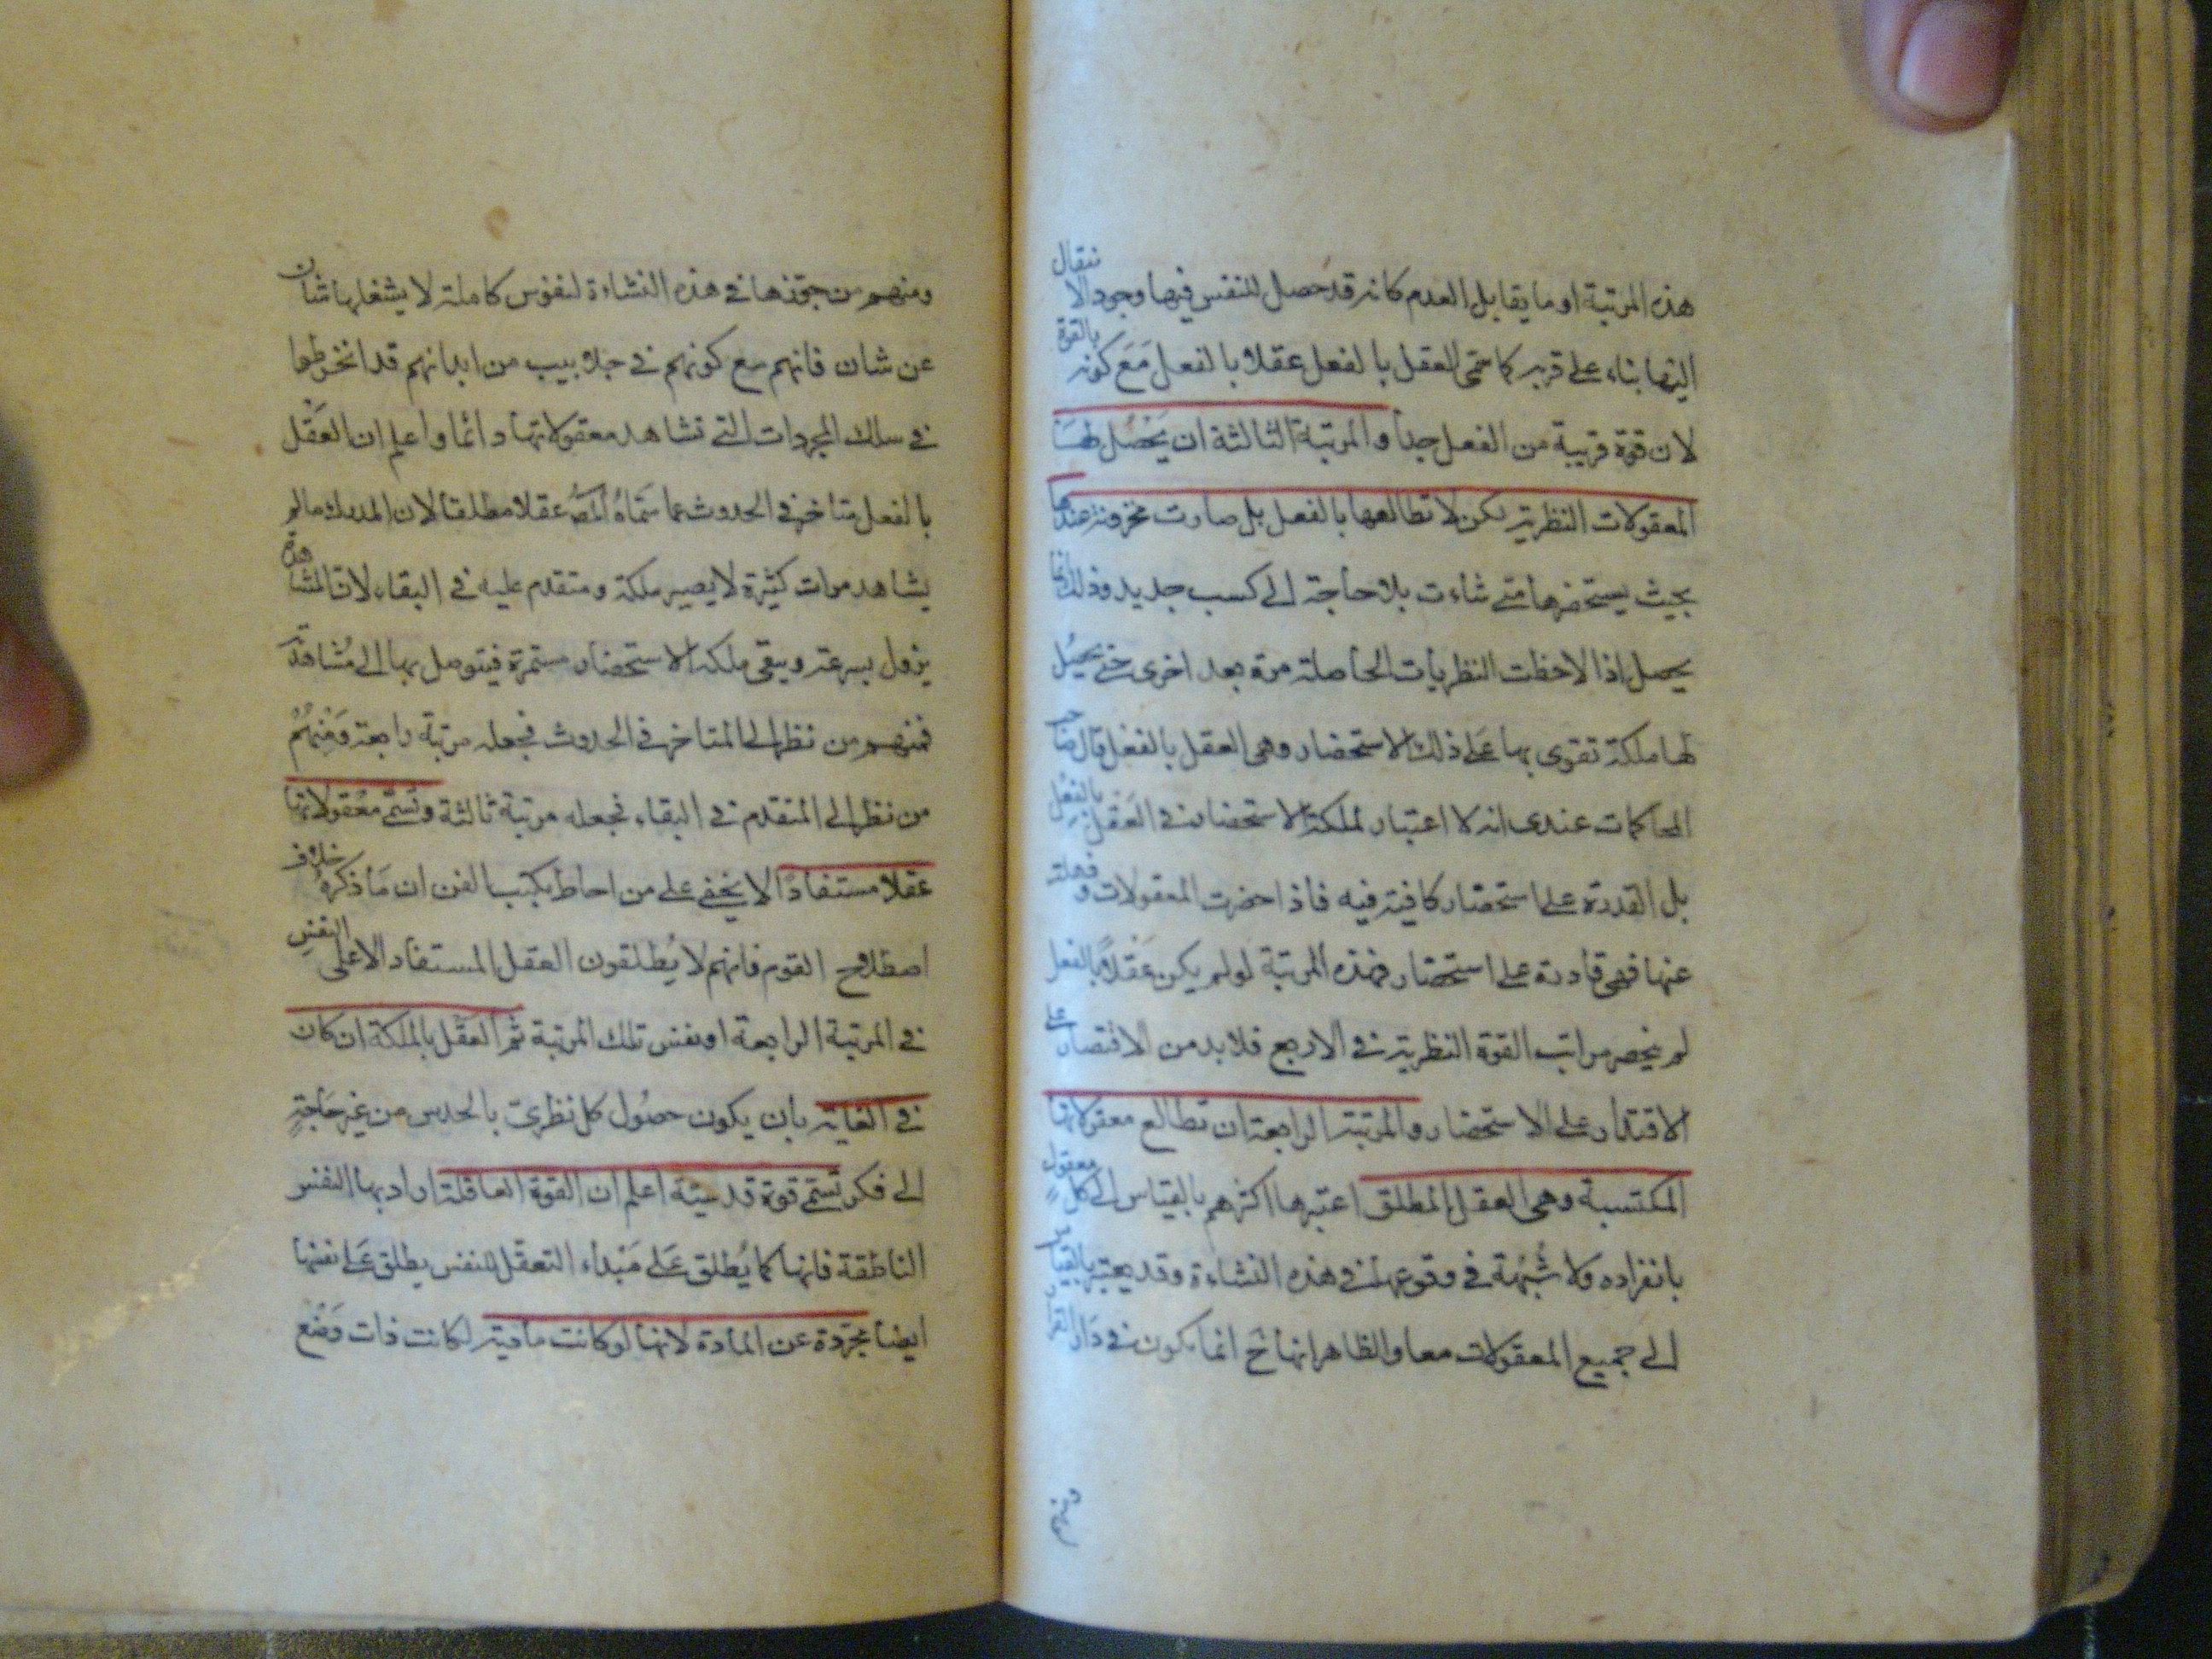 هذه المرتبة او ما يقابل العدم كانه قد حصل للنفس فيها وجود الانتقال
اليها بناء على قربه كما سمى العقل بالفعل عقلا بالفعل مع كونه بالقوة
لان قوة قريبة من الفعل جدا والمرتبة الثالثة ان يحصل لها
المعقولات النظرية لكن لا تطالعها بالفعل بل صارت مخزونة عندها
بحيث يستحضرها متى شاءت بلا حاجة الى كسب جديد وذلك انما
يحصل اذا لاحظت النظريات الحاصلة مرة بعد اخرى حتى يحصل
لها ملكة تقوى بها على ذلك الاستحضار وهى العقل بالفعل قال صاحب
المحاكمات عندى انه لا اعتبار لملكة الاستحضار فى العقل بالفعل
بل القدرة على استحضار كافية فيه فاذا حضرت المعقولات وذهلت
عنها فهى قادرة على استحضار فهذه المرتبة لو لم يكن عقلا بالفعل
لم ينحصر مراتب القوة النظرية فى الاربع فلا بد من الاقتصار على
الاقتدار على الاستحضار والمرتبة الرابعة ان تطالع معقولاتها
المكتسبة وهى العقل المطلق اعتبرها اكثرهم بالقياس الى كل معقول
بانفراده ولا شبهة فى وقوعها فى هذه النشاءة وقد يعتبر بالقياس
الى جميع المعقولات معا والظاهر انها ح انما يكون فى دار القرار
ومنهم
ومنهم من جوزها فى هذه النشاءة لنفوس كاملة لا يشغلها شان
عن شان فانهم مع كونهم فى جلابيب من ابدانهم قد انخرطوا
فى سلك المجردات التى تشاهد معقولاتها دائما واعلم ان العقل
بالفعل متاخر فى الحدوث عما سماه المص عقلا مطلقا لان المدرك ما لم
يشاهد مرات كثيرة لا يصير ملكة ومتقدم عليه فى البقاء لان المشاهدة
يزول بسرعة ويبقى ملكة الاستحضار مستمرة فيتوصل بها الى مشاهدته
فمنهم من نظر الى المتاخر فى الحدوث فجعله مرتبة رابعة ومنهم
من نظر الى المتقدم فى البقاء فجعله مرتبة ثالثة وتسمى معقولاتها
عقلا مستفادا الا يخفى على من احاط بكتب الفن ان ما ذكره خلاف
اصطلاح القوم فانهم لا يطلقون العقل المستفاد الا على النفس
فى المرتبة الرابعة او نفس تلك المرتبة ثم العقل بالملكة ان كان
فى الغاية بان يكون حصول كل نظرى بالحدس من غير حاجة
الى فكر تسمى قوة قدسية اعلم ان القوة العاقلة اراد بها النفس
الناطقة فانها كما يطلق على مبداء التعقل للنفس يطلق على نفسها
ايضا مجردة عن المادة لانها لو كانت مادية لكانت ذات وضع